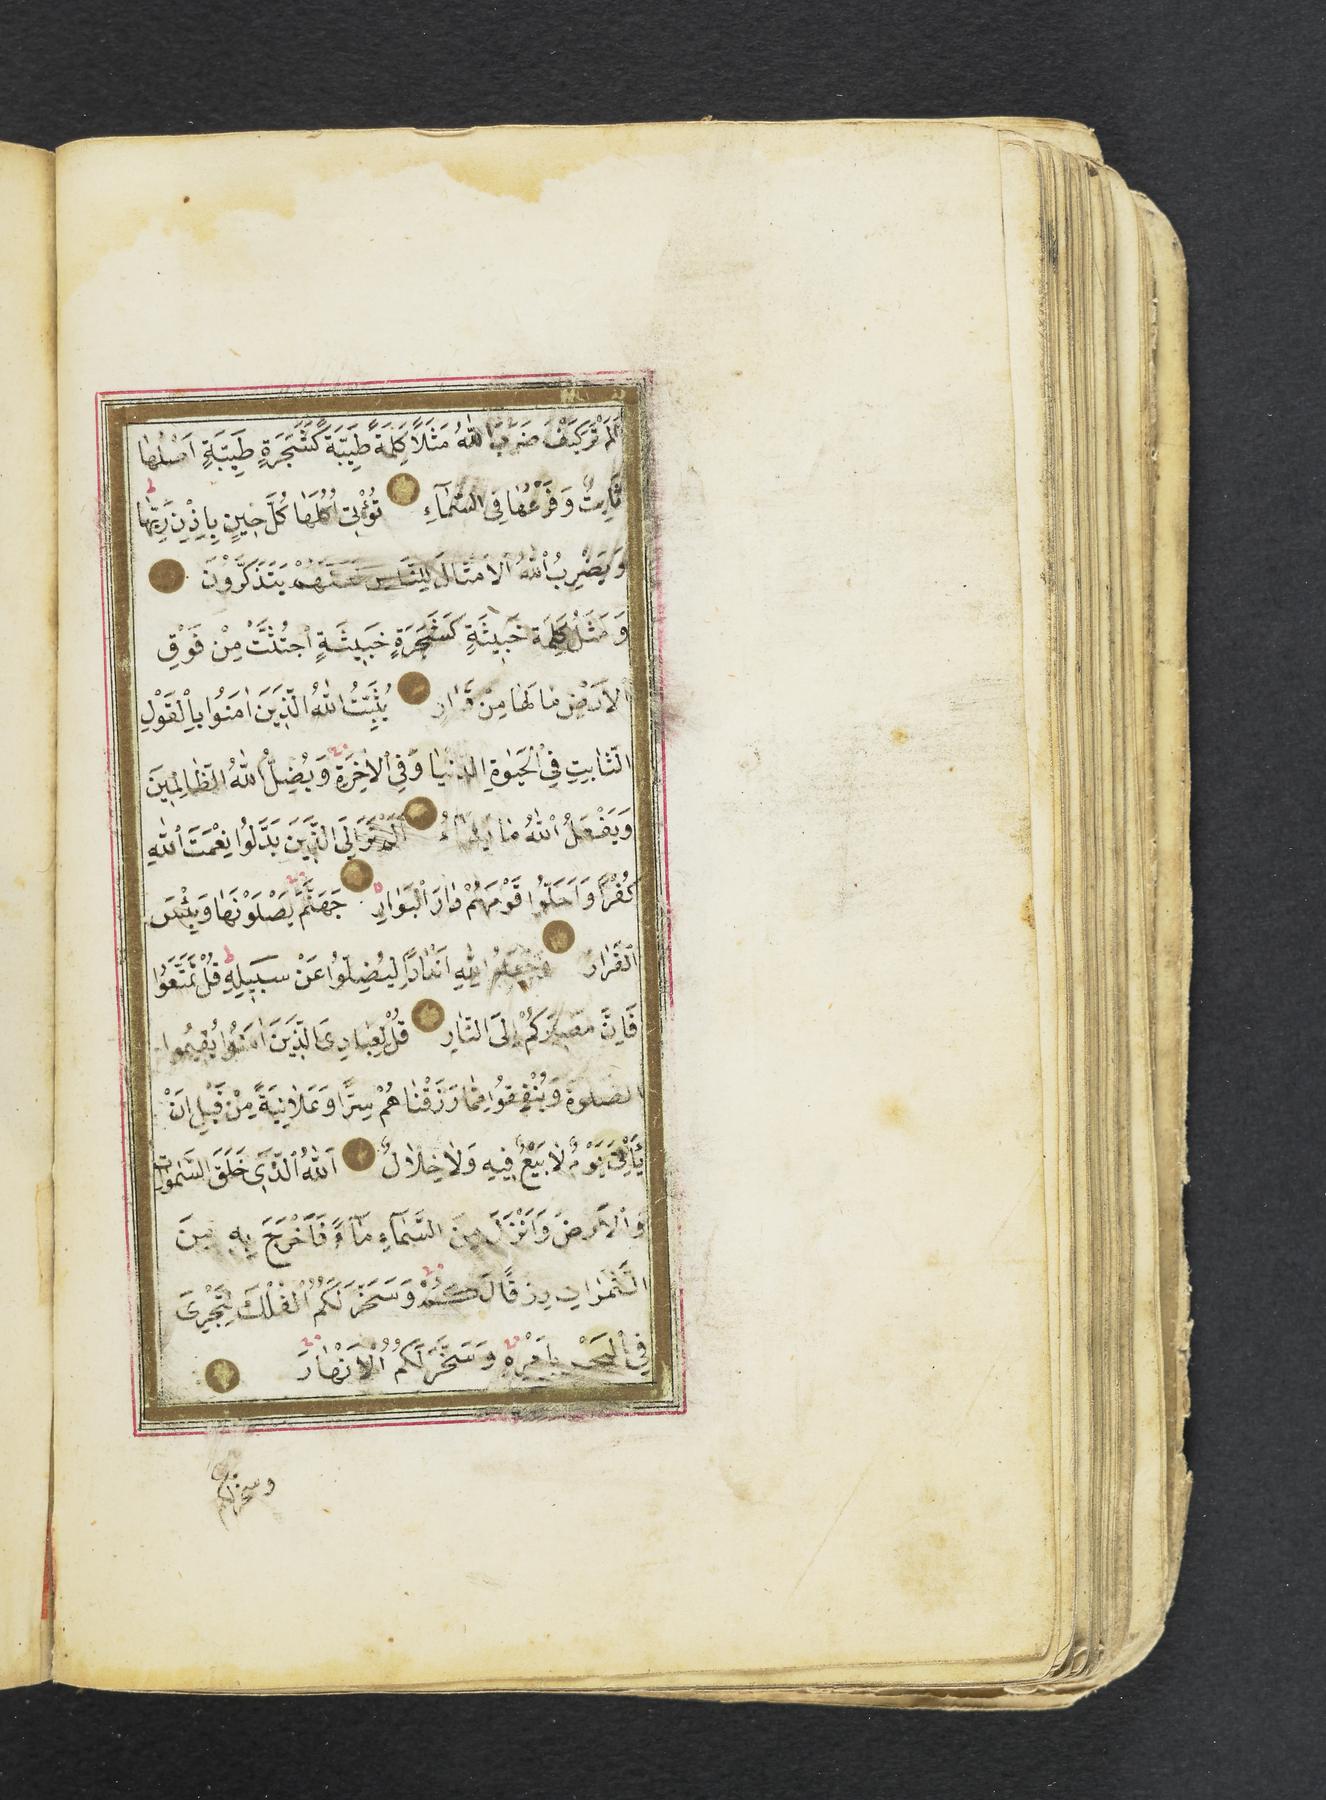 اَلَمْ تَرَ كَيْفَ ضَرَبَ اللّٰهُ مَثَلًا كَلِمَةً طَيِّبَةً كَشَجَرَةٍ طَيِّبَةٍ اَصْلُهَا
ثَابِتٌ وَفَرْعُهَا فِى السَّمَآءِ تُؤْتِى اُكُلَهَا كُلَّ حِينٍ بِاِذْنِ رَبِّهَا ط
وَيَضْرِبُ اللّٰهُ الْاَمْثَالَ لِلنَّاسِ لَعَلَّهُمْ يَتَذَكَّرُونَ
وَمَثَلُ كَلِمَةٍ خَبِيثَةٍ كَشَجَرَةٍ خَبِيثَةٍ اجْتُثَّتْ مِنْ فَوْقِ
الْاَرْضِ مَا لَهَا مِنْ قَرَارٍ يُثَبِّتُ اللّٰهُ الَّذِينَ اٰمَنُوا بِالْقَوْلِ
الثَّابِتِ فِى الْحَيٰوةِ الدُّنْيَا وَفِى الْاٰخِرَةِ وَيُضِلُّ اللّٰهُ الظَّالِمِينَ
وَيَفْعَلُ اللّٰهُ مَا يَشَآءُ اَلَمْ تَرَ اِلَى الَّذِينَ بَدَّلُوا نِعْمَتَ اللّٰهِ
كُفْرًا وَاَحَلُّوا قَوْمَهُمْ دَارَ الْبَوَارِ جَهَنَّمَ يَصْلَوْنَهَا وَبِئْسَ
الْقَرَارُ وَجَعَلُوا لِلّٰهِ اَنْدَادًا لِيُضِلُّوا عَنْ سَبِيلِهِ ط قُلْ تَمَتَّعُوا
فَاِنَّ مَصِيرَكُمْ اِلَى النَّارِ قُلْ لِعِبَادِىَ الَّذِينَ اٰمَنُوا يُقِيمُوا
الصَّلٰوةَ وَيُنْفِقُوا مِمَّا رَزَقْنَاهُمْ سِرًّا وَعَلَانِيَةً مِنْ قَبْلِ اَنْ
يَأْتِىَ يَوْمٌ لَا بَيْعٌ فِيهِ وَلَا خِلَالٌ اَللّٰهُ الَّذِى خَلَقَ السَّمٰوَاتِ
وَالْاَرْضَ وَاَنْزَلَ مِنَ السَّمَآءِ مَآءً فَاَخْرَجَ بِهِ مِنَ
الثَّمَرَاتِ رِزْقًا لَكُمْ وَسَخَّرَ لَكُمُ الْفُلْكَ لِتَجْرِىَ
فِى الْبَحْرِ بِاَمْرِهِ وَسَخَّرَ لَكُمُ الْاَنْهَارَ
وسخر لكم